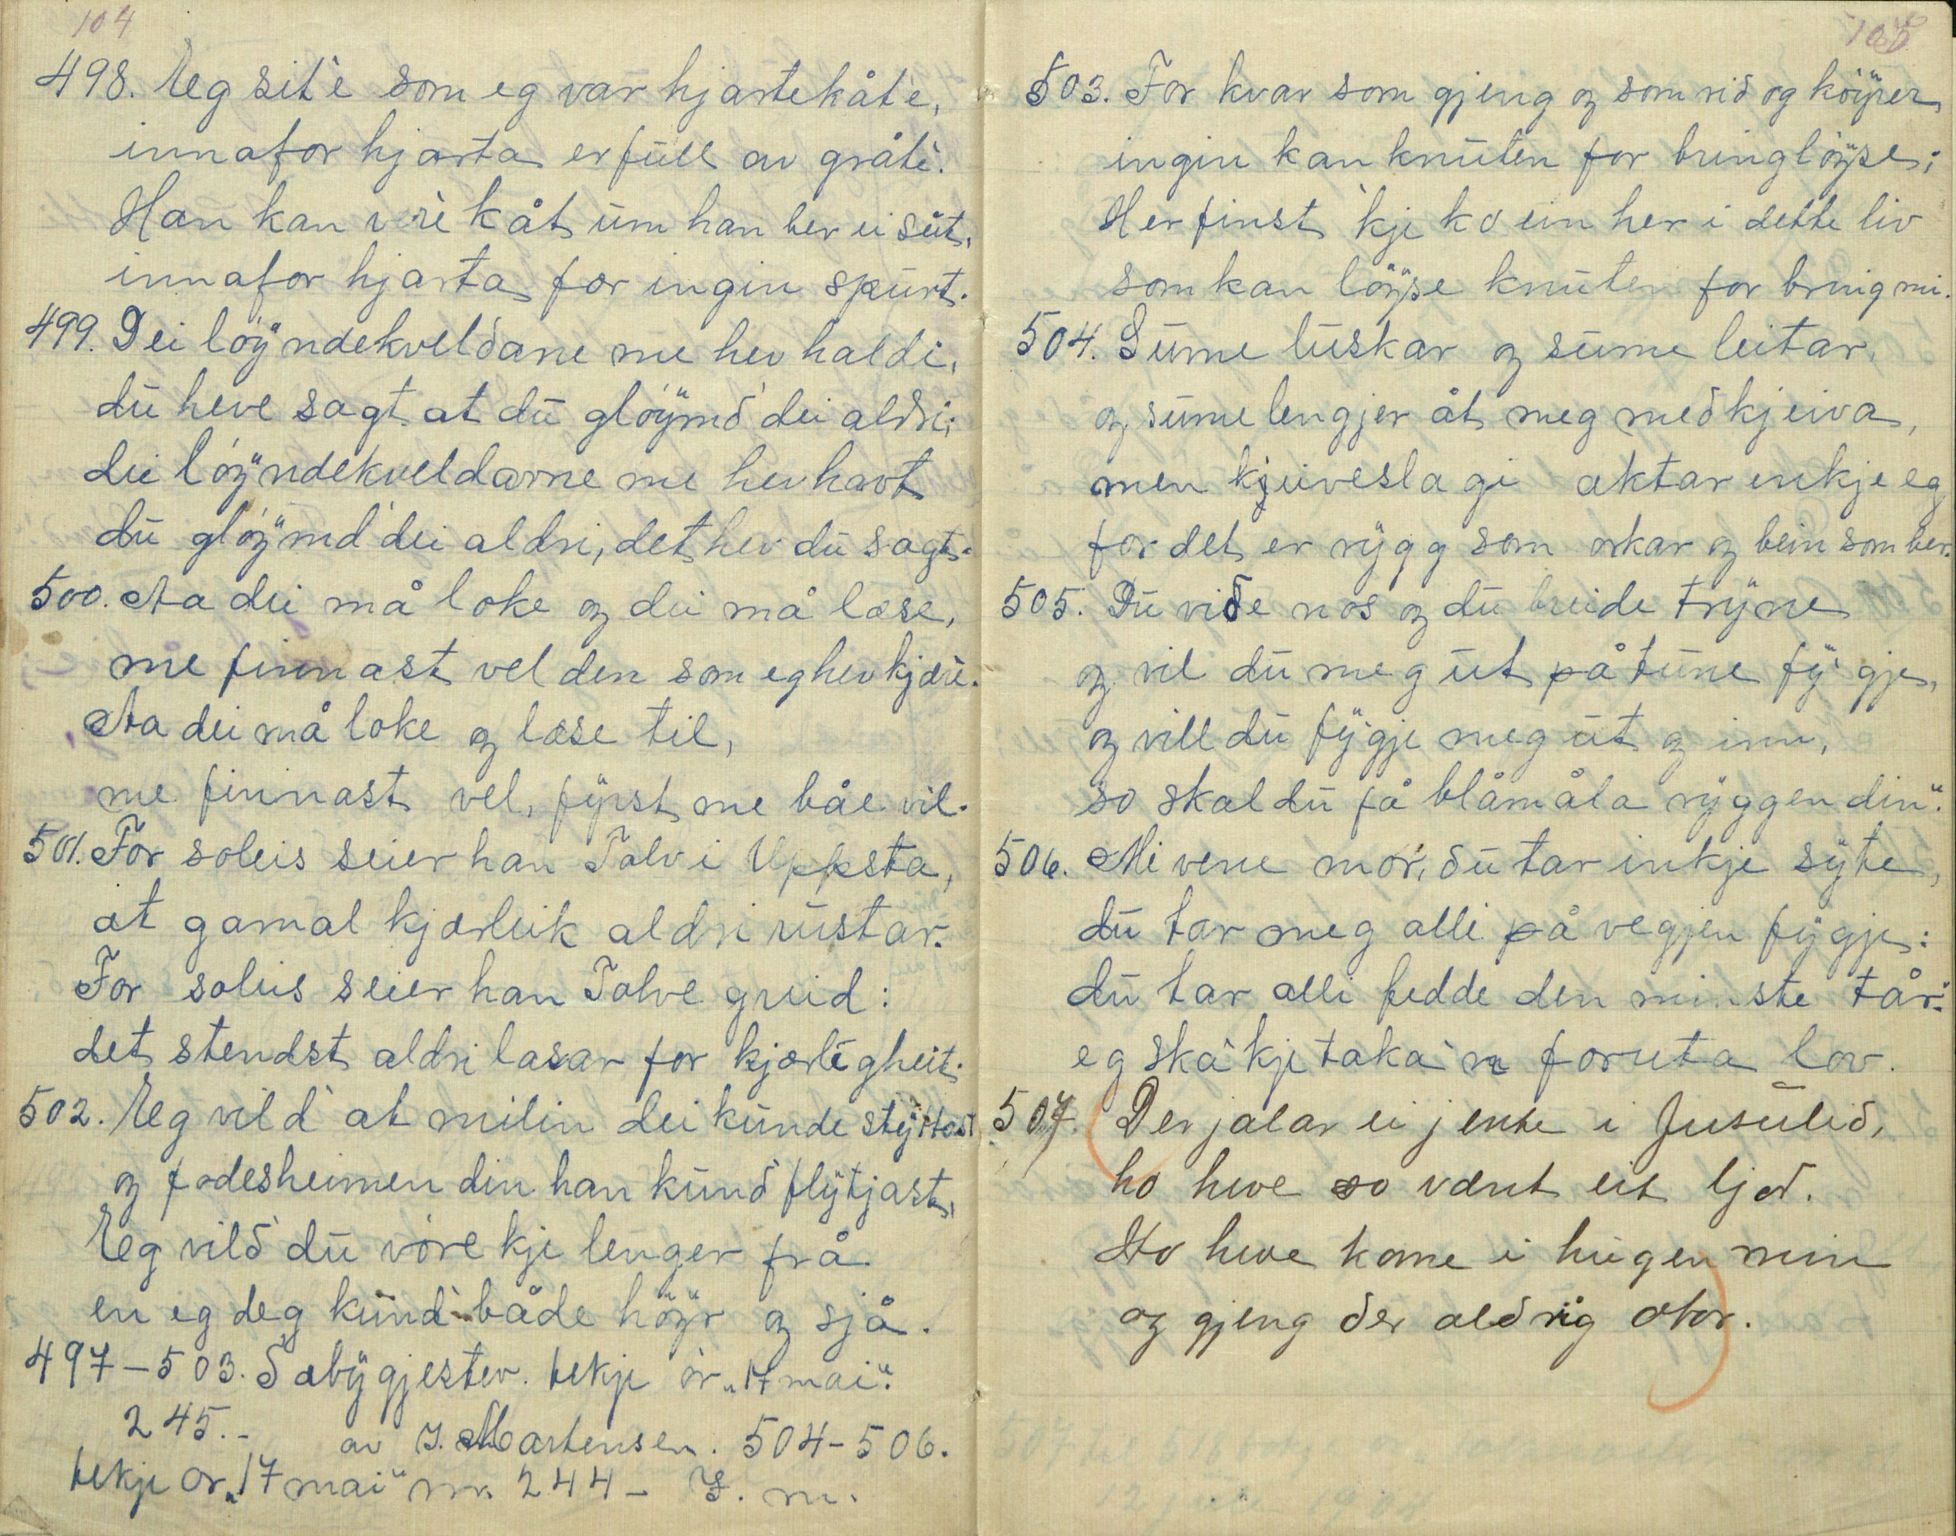 104
498. Eg sit'e som eg var hjartekåt'e,
innafor hjarta er full av gråte.
Han kan veri kåt um han ber ei sut,
innafor hjarta fær ingin spurt.
499. Dei løyndekveldane me hev haldi,
du heve sagt at du gløymd' dei aldri;
dei løyndekveldarne me hev havt
du gløymd' dei aldri, det hev du sagt.
500. Aa dei må loke og dei må læse,
me finnast vel den som eg hev kjære.
Aa dei må loke og læse til,
me finnast vel, fyrst me båe vil.
501. For soleis seier han Talv i Uppsta,
at gamal kjærleik aldri rustar.
For soleis seier han Talve greid:
det stendst aldri lasar for kjærligheit.
502. Eg vild' at milin dei kunde styttast
og fodesheimen din han kund' flytjast,
Eg vild' du vore kje lenger frå
en eg deg kund' både høyr og sjå.
497–503. Sæbygjestev. tekje or „17 mai".
245.- av J. Martensen. 504–506.
tekje or „17 mai" nr. 244 – J. m.
105
503. For kvar som gjeng og som rid og køyrer,
ingin kan knuten for bringløyse;
Her finst 'kje ko ein her i dette liv
som kan løyse knuten for bring mi.
504. Sume luskar og sume leitar,
og sume lengjer åt meg med kjeiva,
men kjeiveslagi aktar inkje eg
for det er rygg som orkar og bein som ber.
505. Du vide nos og du breide tryne
og vil du meg ut på tune fygje,
og vill du fygje meg ut og inn,
so skal du få blåmåla ryggen din".
506. Mi vene mor, du tar inkje syte,
du tar meg alli på vegjen fygje:
du tar alli fedde den minste tår:
eg ska 'kje taka 'n foruta lov.
507. Der jalar ei jente i Jusulid,
ho heve so vænt eit ljod.
Ho heve kome i hugen min
og gjeng der aldrig otor.